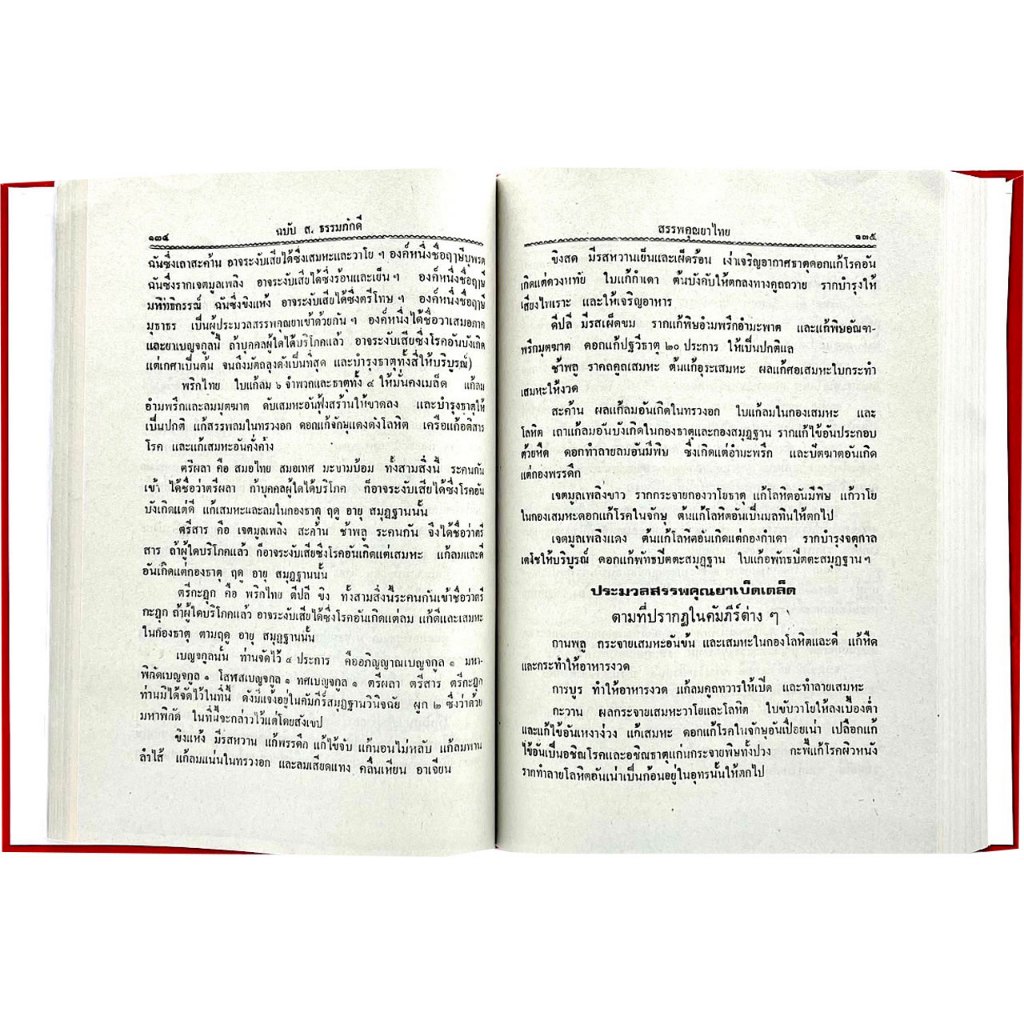 ๑๓๔
ฉบับ ส. ธรรมภักดี
ฉันซึ่งเถาสะค้าน อาจระงับเสียได้ซึ่งเสมหะและวาโย ฯ องค์หนึ่งชื่อฤาษีบุพรต
ฉันซึ่งรากเจตมูลเพลิง อาจระงับเสียได้ซึ่งร้อนและเย็น ฯ องค์หนึ่งชื่อฤาษี
มหิทธิกรรณ์ ฉันซึ่งขิงแห้ง อาจระงับเสียได้ซึ่งตรีโทษ ฯ องค์หนึ่งชื่อฤาษี
มุธาธร เป็นผู้ประมวลสรรพคุณยาเข้าด้วยกัน ฯ องค์หนึ่งได้ชื่อว่าเสมอภาค
และยาเบญจกูลนี้ ถ้าบุคคลผู้ใดได้บริโภคแล้ว อาจระงับเสียซึ่งโรคอันบังเกิด
แต่เกศาเป็นต้น จนถึงมัตถลุงคังเป็นที่สุด และบำรุงธาตุทั้งสี่ให้บริบูรณ์)
พริกไทย ใบแก้ลม ๖ จำพวกและธาตุทั้ง ๔ ให้มั่นคงเมล็ด แก้ลม
อำมพรึกและลมมุตฆาต ดับเสมหะอันฟุ้งสร้านให้ขาดลง และบำรุงธาตุให้
เป็นปกติ แก้สรรพลมในทรวงอก ดอกแก้จักษุแดงดังโลหิต เครือแก้อติสาร
โรค และแก้เสมหะอันคั่งค้าง
ตรีผลา คือ สมอไทย สมอเทศ มะขามป้อม ทั้งสามสิ่งนี้ ระคนกัน
เข้า ได้ชื่อว่าตรีผลา ถ้าบุคคลผู้ใดได้บริโภค ก็อาจระงับเสียได้ซึ่งโรคอัน
บังเกิดแต่ดี แก้เสมหะและลมในกองธาตุ ฤดู อายุ สมุฏฐานนั้น
ตรีสาร คือ เจตมูลเพลิง สะค้าน ช้าพลู ระคนกัน จึงได้ชื่อว่าตรี
สาร ถ้าผู้ใดบริโภคแล้ว ก็อาจระงับเสียซึ่งโรคอันเกิดแต่เสมหะ แก้ลมและดี
อันเกิดแต่กองธาตุ ฤดู อายุ สมุฏฐานนั้น
ตรีกะฏุก คือ พริกไทย ดีปลี ขิง ทั้งสามสิ่งนี้ระคนกันเข้าชื่อว่าตรี
กะฏุก ถ้าผู้ใดบริโภคแล้ว อาจระงับเสียได้ซึ่งโรคอันเกิดแต่ลม แก้ดีและเสมหะ
ในกองธาตุ ตามฤดู อายุ สมุฏฐานนั้น
เบญจกูลนั้น ท่านจัดไว้ ๔ ประการ คืออภิญญาณเบญจกูล ๑ มหา-
พิกัดเบญจกูล ๑ โสฬสเบญจกูล ๑ ทศเบญจกูล ๑ ตรีผลา ตรีสาร ตรีกะฏุก
ท่านมิได้จัดไว้ในที่นี้ ดังมีแจ้งอยู่ในคัมภีร์สมุฏฐานวินิจฉัย ผูก ๒ ซึ่งว่าด้วย
มหาพิกัด ในที่นี้จะกล่าวไว้แต่โดยสังเขป
ขิงแห้ง มีรสหวาน แก้พรรดึก แก้ไข้จับ แก้นอนไม่หลับ แก้ลมพาน
ลำไส้ แก้ลมแน่นในทรวงอก และลมเสียดแทง คลื่นเหียน อาเจียน
สรรพคุณยาไทย
๑๓๕
ขิงสด มีรสหวานเย็นและเผ็ดร้อน เง่าเจริญอากาศธาตุดอกแก้โรคอัน
เกิดแต่ดวงหทัย ใบแก้กำเดา ต้นบังคับให้ตกลงทางคูถถวาย รากบำรุงให้
เสียงไพเราะ และให้เจริญอาหาร
ดีปลี มีรสเผ็ดขม รากแก้พิษอำมพรึกอำมะพาต และแก้พิษอัณฑ-
พรึกมุตฆาต ดอกแก้ปฐวีธาตุ ๒๐ ประการ ให้เป็นปกติแล
ช้าพลู รากคลคูถเสมหะ ต้นแก้อุระเสมหะ ผลแก้ศอเสมหะใบกระทำ
เสมหะให้งวด
สะค้าน ผลแก้ลมอันเกิดในทรวงอก ใบแก้ลมในกองเสมหะ และ
โลหิต เถาแก้ลมอันบังเกิดในกองธาตุและกองสมุฏฐาน รากแก้ไข้อันประกอบ
ด้วยหืด ดอกทำลายลมอันมีพิษ ซึ่งเกิดแต่อำมะพรึก และปัตฆาตอันเกิด
แต่กองพรรดึก
เจตมูลเพลิงขาว รากกระจายกองวาโยธาตุ แก้โลหิตอันมีพิษ แก้วาโย
ในกองเสมหะดอกแก้โรคในจักษุ ต้นแก้โลหิตอันเป็นมลทินให้ตกไป
เจตมูลเพลิงแดง ต้นแก้โลหิตอันเกิดแต่กองกำเดา รากบำรุงจตุกาล
เตโชให้บริบูรณ์ ดอกแก้พัทธปิตตะสมุฏฐาน ใบแก้อพัทธปิตตะสมุฏฐาน ฯ
ประมวลสรรพคุณยาเบ็ดเตล็ด
ตามที่ปรากฏในคัมภีร์ต่าง ๆ
กานพลู กระจายเสมหะอันข้น และเสมหะในกองโลหิตและดี แก้หืด
และกระทำให้อาหารงวด
การบูร ทำให้อาหารงวด แก้ลมคูถทวารให้เปิด และทำลายเสมหะ
กะวาน ผลกระจายเสมหะวาโยและโลหิต ใบขับวาโยให้ลงเบื้องต่ำ
และแก้ไข้อันเหงาง่วง แก้เสมหะ ดอกแก้โรคในจักษุอันเปื่อยเน่า เปลือกแก้
ไข้อันเป็นอชิณโรคและอชิณธาตุแก่นกระจายพิษทั้งปวง กะพี้แก้โรคผิวหนัง
รากทำลายโลหิตอันเน่าเป็นก้อนอยู่ในอุทรนั้นให้ตกไป